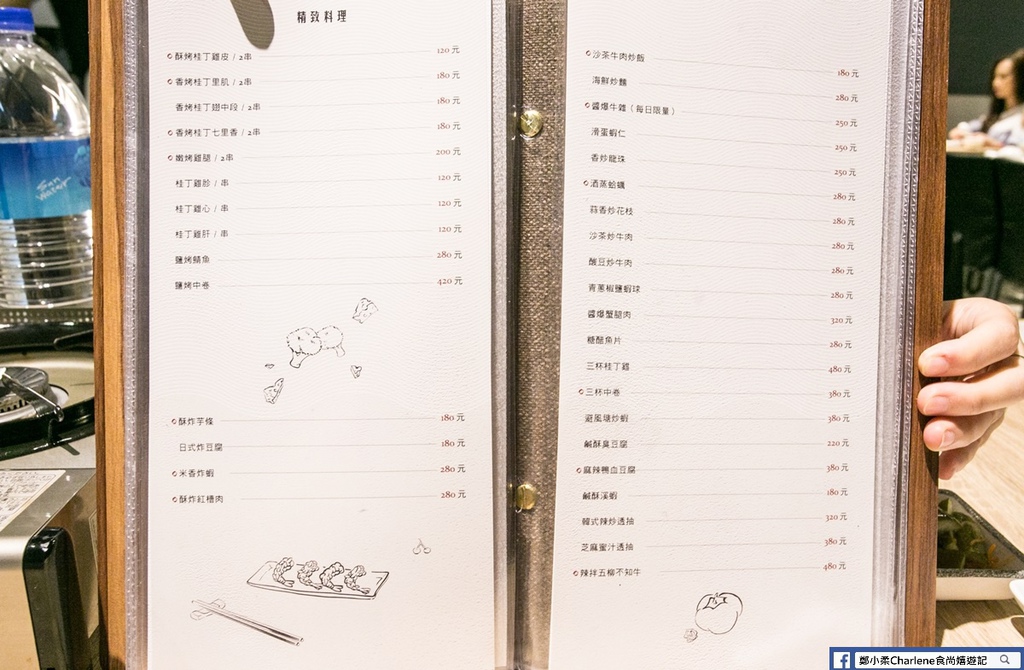 精致料理
酥烤桂丁雞皮 / 2串 120 元
香烤桂丁里肌 / 2串 180 元
香烤桂丁翅中段 / 2串 180 元
香烤桂丁七里香 / 2串 180 元
嫩烤雞腿 / 2串 200 元
桂丁雞胗 / 串 120 元
桂丁雞心 / 串 120 元
桂丁雞肝 / 串 120 元
鹽烤鯖魚 280 元
鹽烤中卷 420 元
酥炸芋條 180 元
日式炸豆腐 180 元
米香炸蝦 280 元
酥炸紅糟肉 280 元
沙茶牛肉炒飯 180 元
海鮮炒麵 280 元
醬爆牛雜（每日限量） 250 元
滑蛋蝦仁 250 元
香炒龍珠 250 元
酒蒸蛤蠣 280 元
蒜香炒花枝 280 元
沙茶炒牛肉 280 元
酸豆炒牛肉 280 元
青蔥椒鹽蝦球 280 元
醬爆蟹腿肉 320 元
糖醋魚片 280 元
三杯桂丁雞 480 元
三杯中卷 380 元
避風塘炒蝦 380 元
鹹酥臭豆腐 220 元
麻辣鴨血豆腐 380 元
鹹酥溪蝦 180 元
韓式辣炒透抽 320 元
芝麻蜜汁透抽 380 元
辣拌五柳不知牛 480 元
Sun
Water
鄭小柔Charlene食尚嬉遊記